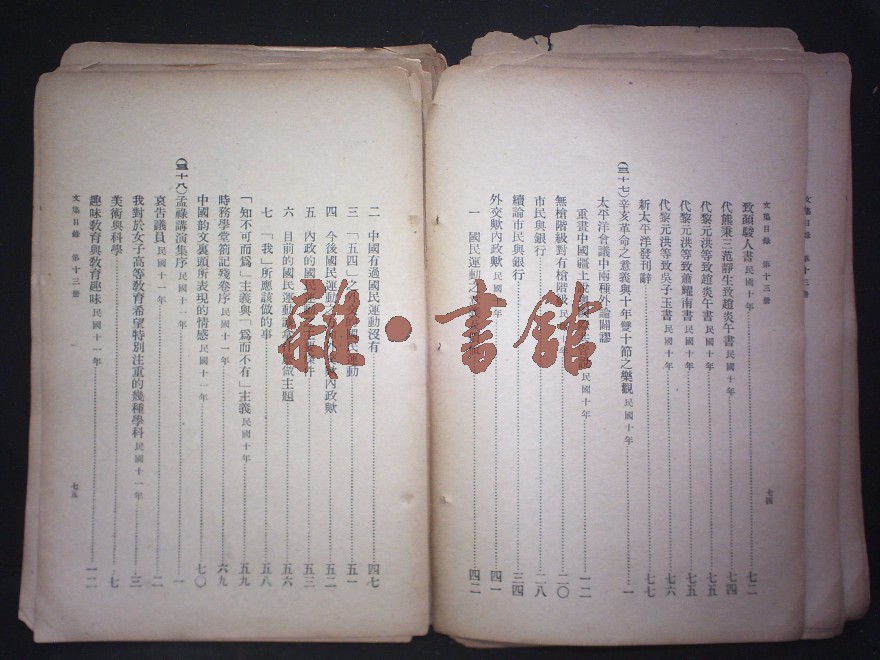 文集目錄 第十三册
文集目錄 第十三册 七四
致顔駿人書 民國十年 七二
代熊秉三范靜生致趙炎午書 民國十年 七四
代黎元洪等致趙炎午書 民國十年 七五
代黎元洪等致蕭耀南書 七五
代黎元洪等致吳子玉書 七六
新太平洋發刊辭 七七
(三十七)辛亥革命之意義與十年雙十節之樂觀 民國十年 一
太平洋會議中兩種外論闢謬
重畫中國疆土 民國十年 一二
無槍階級對有槍階級 民 二〇
市民與銀行 二八
續論市民與銀行 三四
外交歟內政歟 民國十年 四一
一 國民運動之 四二
二 中國有過國民運動沒有 四七
三 「五四」之外 國民運動 五一
四 今後國民運動 內政歟 五二
五 內政的國民 件 五三
六 目前的國民運動 做主題 五六
七 「我」所應該做的事 五八
「知不可而爲」主義與「爲而不有」主義 民國十年 五九
時務學堂劄記殘卷序 民國十一年 六九
中國韵文裏頭所表現的情感 民國十一年 七〇
(三十八)孟祿講演集序 民國十一年 一
哀告議員 民國十一年 二
我對於女子高等敎育希望特別注重的幾種學科 民國十一年 三
美術與科學 七
趣味敎育與敎育趣味 民國十一年 一二
文集目錄 第十三册 七五
雜·書館